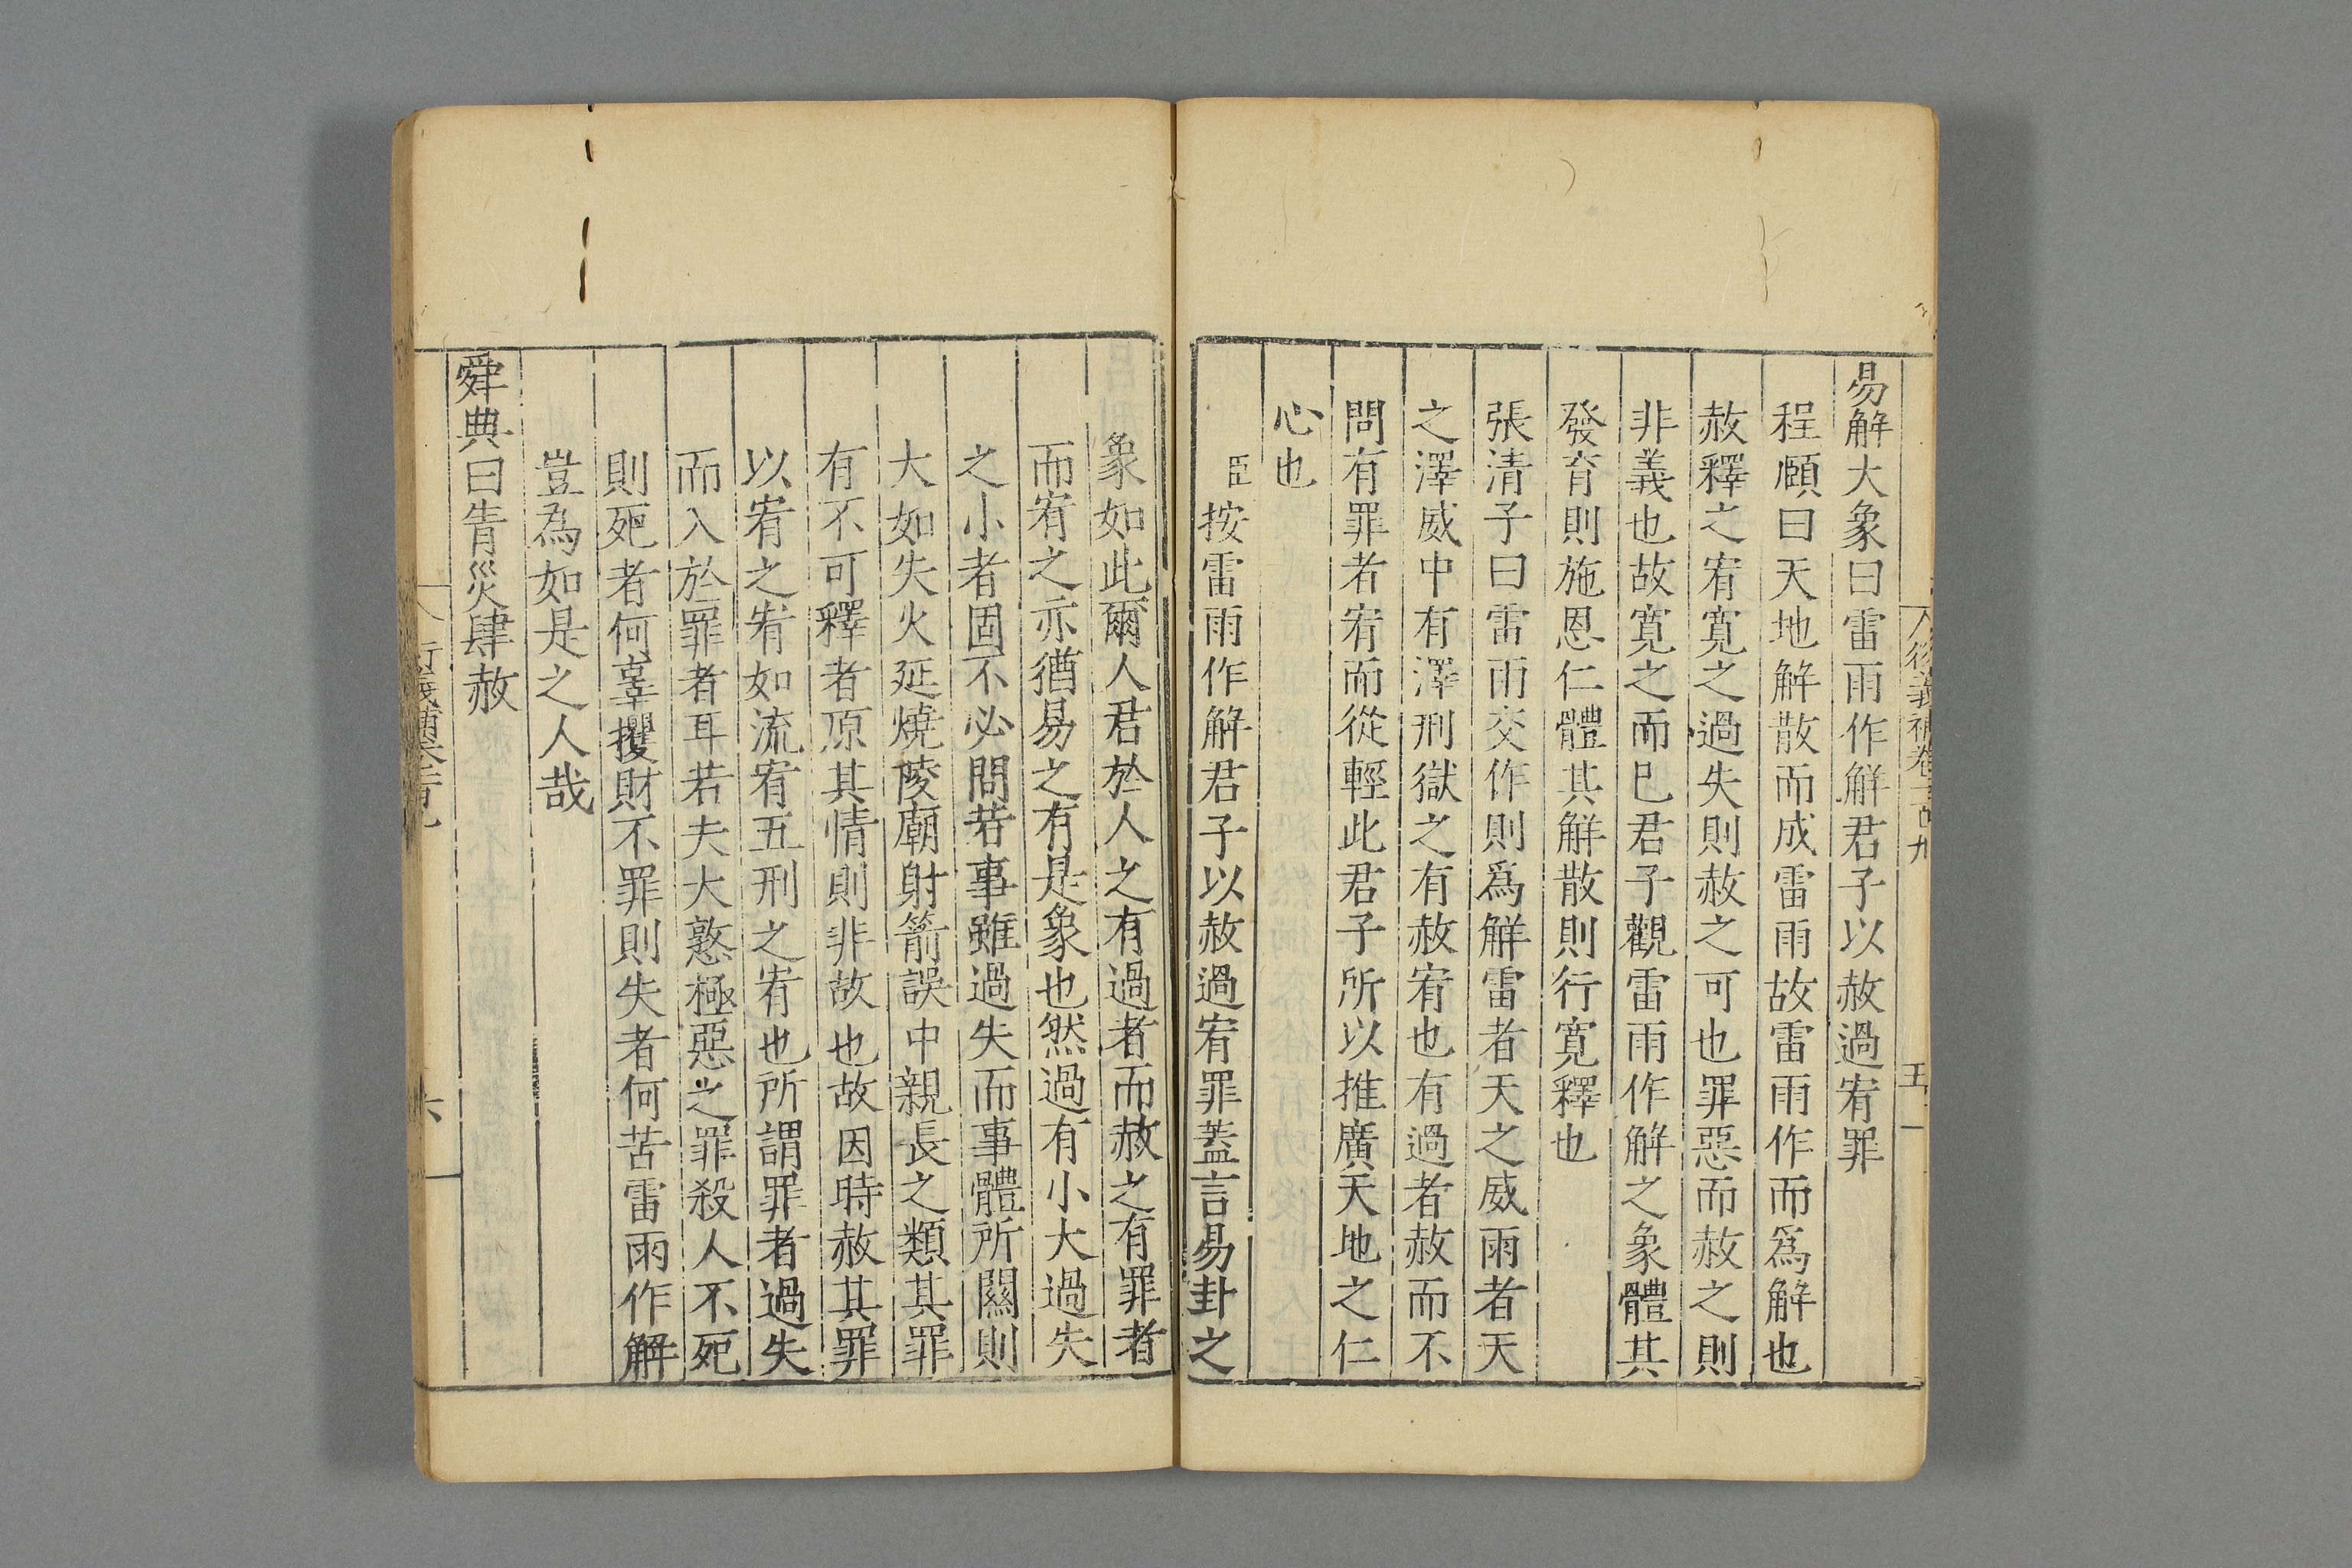 易解大象曰雷雨作解君子以赦過宥罪
程頤曰天地解散而成雷雨故雷雨作而爲解也
赦釋之宥寬之過失則赦之可也罪惡而赦之則
非義也故寬之而已君子觀雷雨作解之象體其
發育則施恩仁體其解散則行寬釋也
張清子曰雷雨交作則爲解雷者天之威雨者天
之澤威中有澤刑獄之有赦宥也有過者赦而不
問有罪者宥而從輕此君子所以推廣天地之仁
心也
臣按雷雨作解君子以赦過宥罪蓋言易卦之
象如此爾人君於人之有過者而赦之有罪者
而宥之亦猶易之有是象也然過有小大過失
之小者固不必問若事雖過失而事體所關則
大如失火延燒陵廟射箭誤中親長之類其罪
有不可釋者原其情則非故也故因時赦其罪
以宥之宥如流宥五刑之宥也所謂罪者過失
而入於罪者耳若夫大憝極惡之罪殺人不死
則死者何辜攫財不罪則失者何苦雷雨作解
豈為如是之人哉
舜典曰眚災肆赦
六